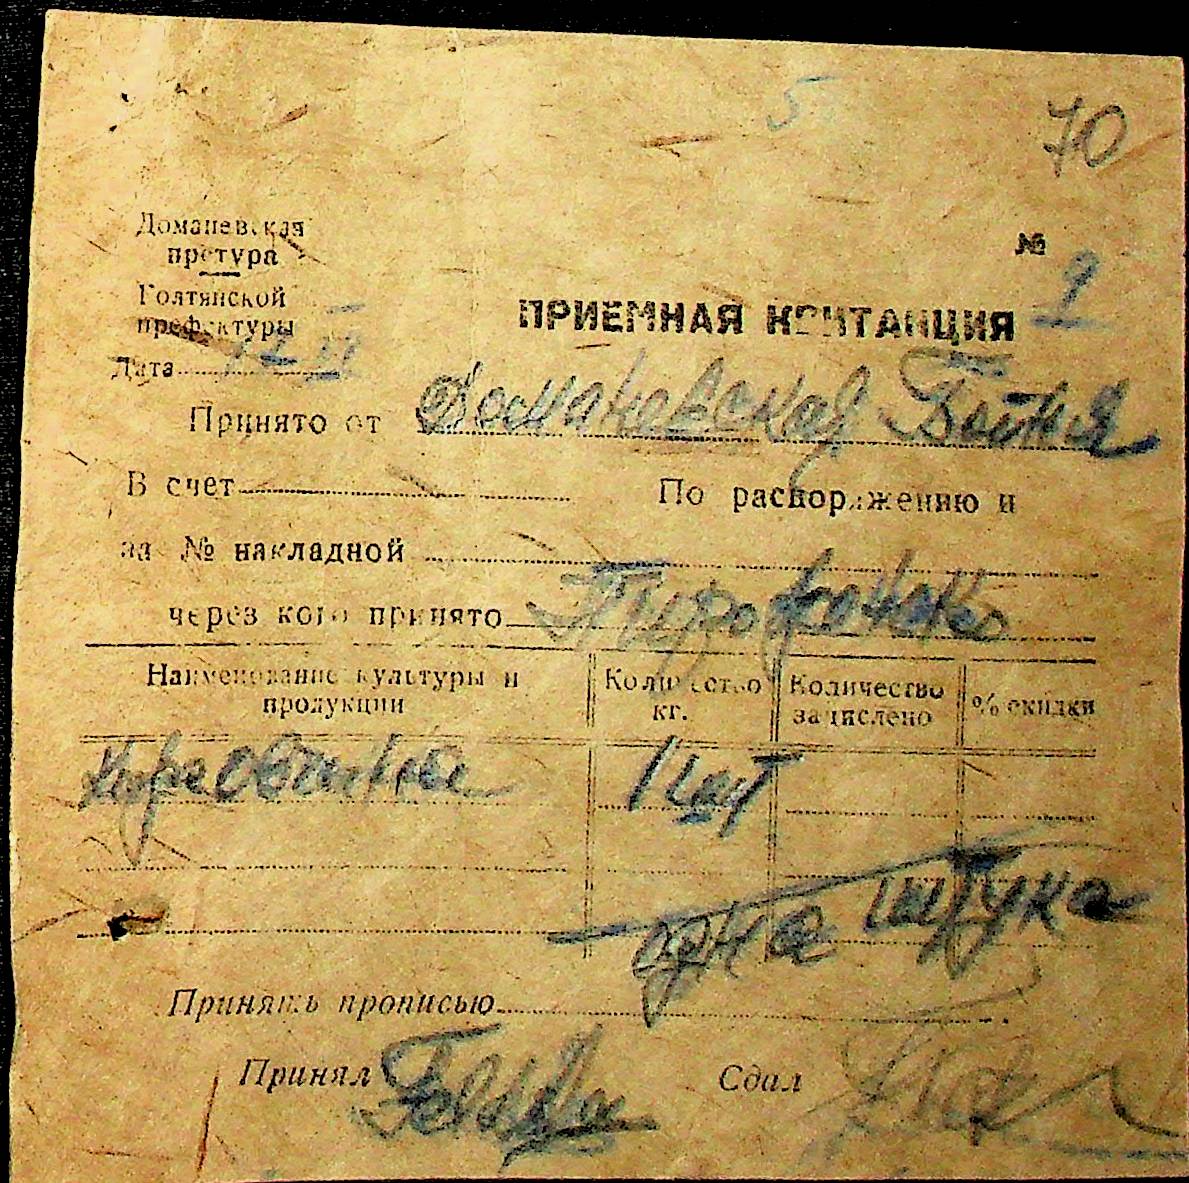 5
70
Доманевская
претура
№ 9
Голтянской
префектуры
ПРИЕМНАЯ КВИТАНЦИЯ
Дата 12 VI
Принято от Доманевская
В счет По распоряжению и
за № накладной
через кого принято
Наименование культуры и продукции
Количество кг.
Количество зачислено
% скидки
1 шт
одна штука
Принять прописью
Принял Сдал